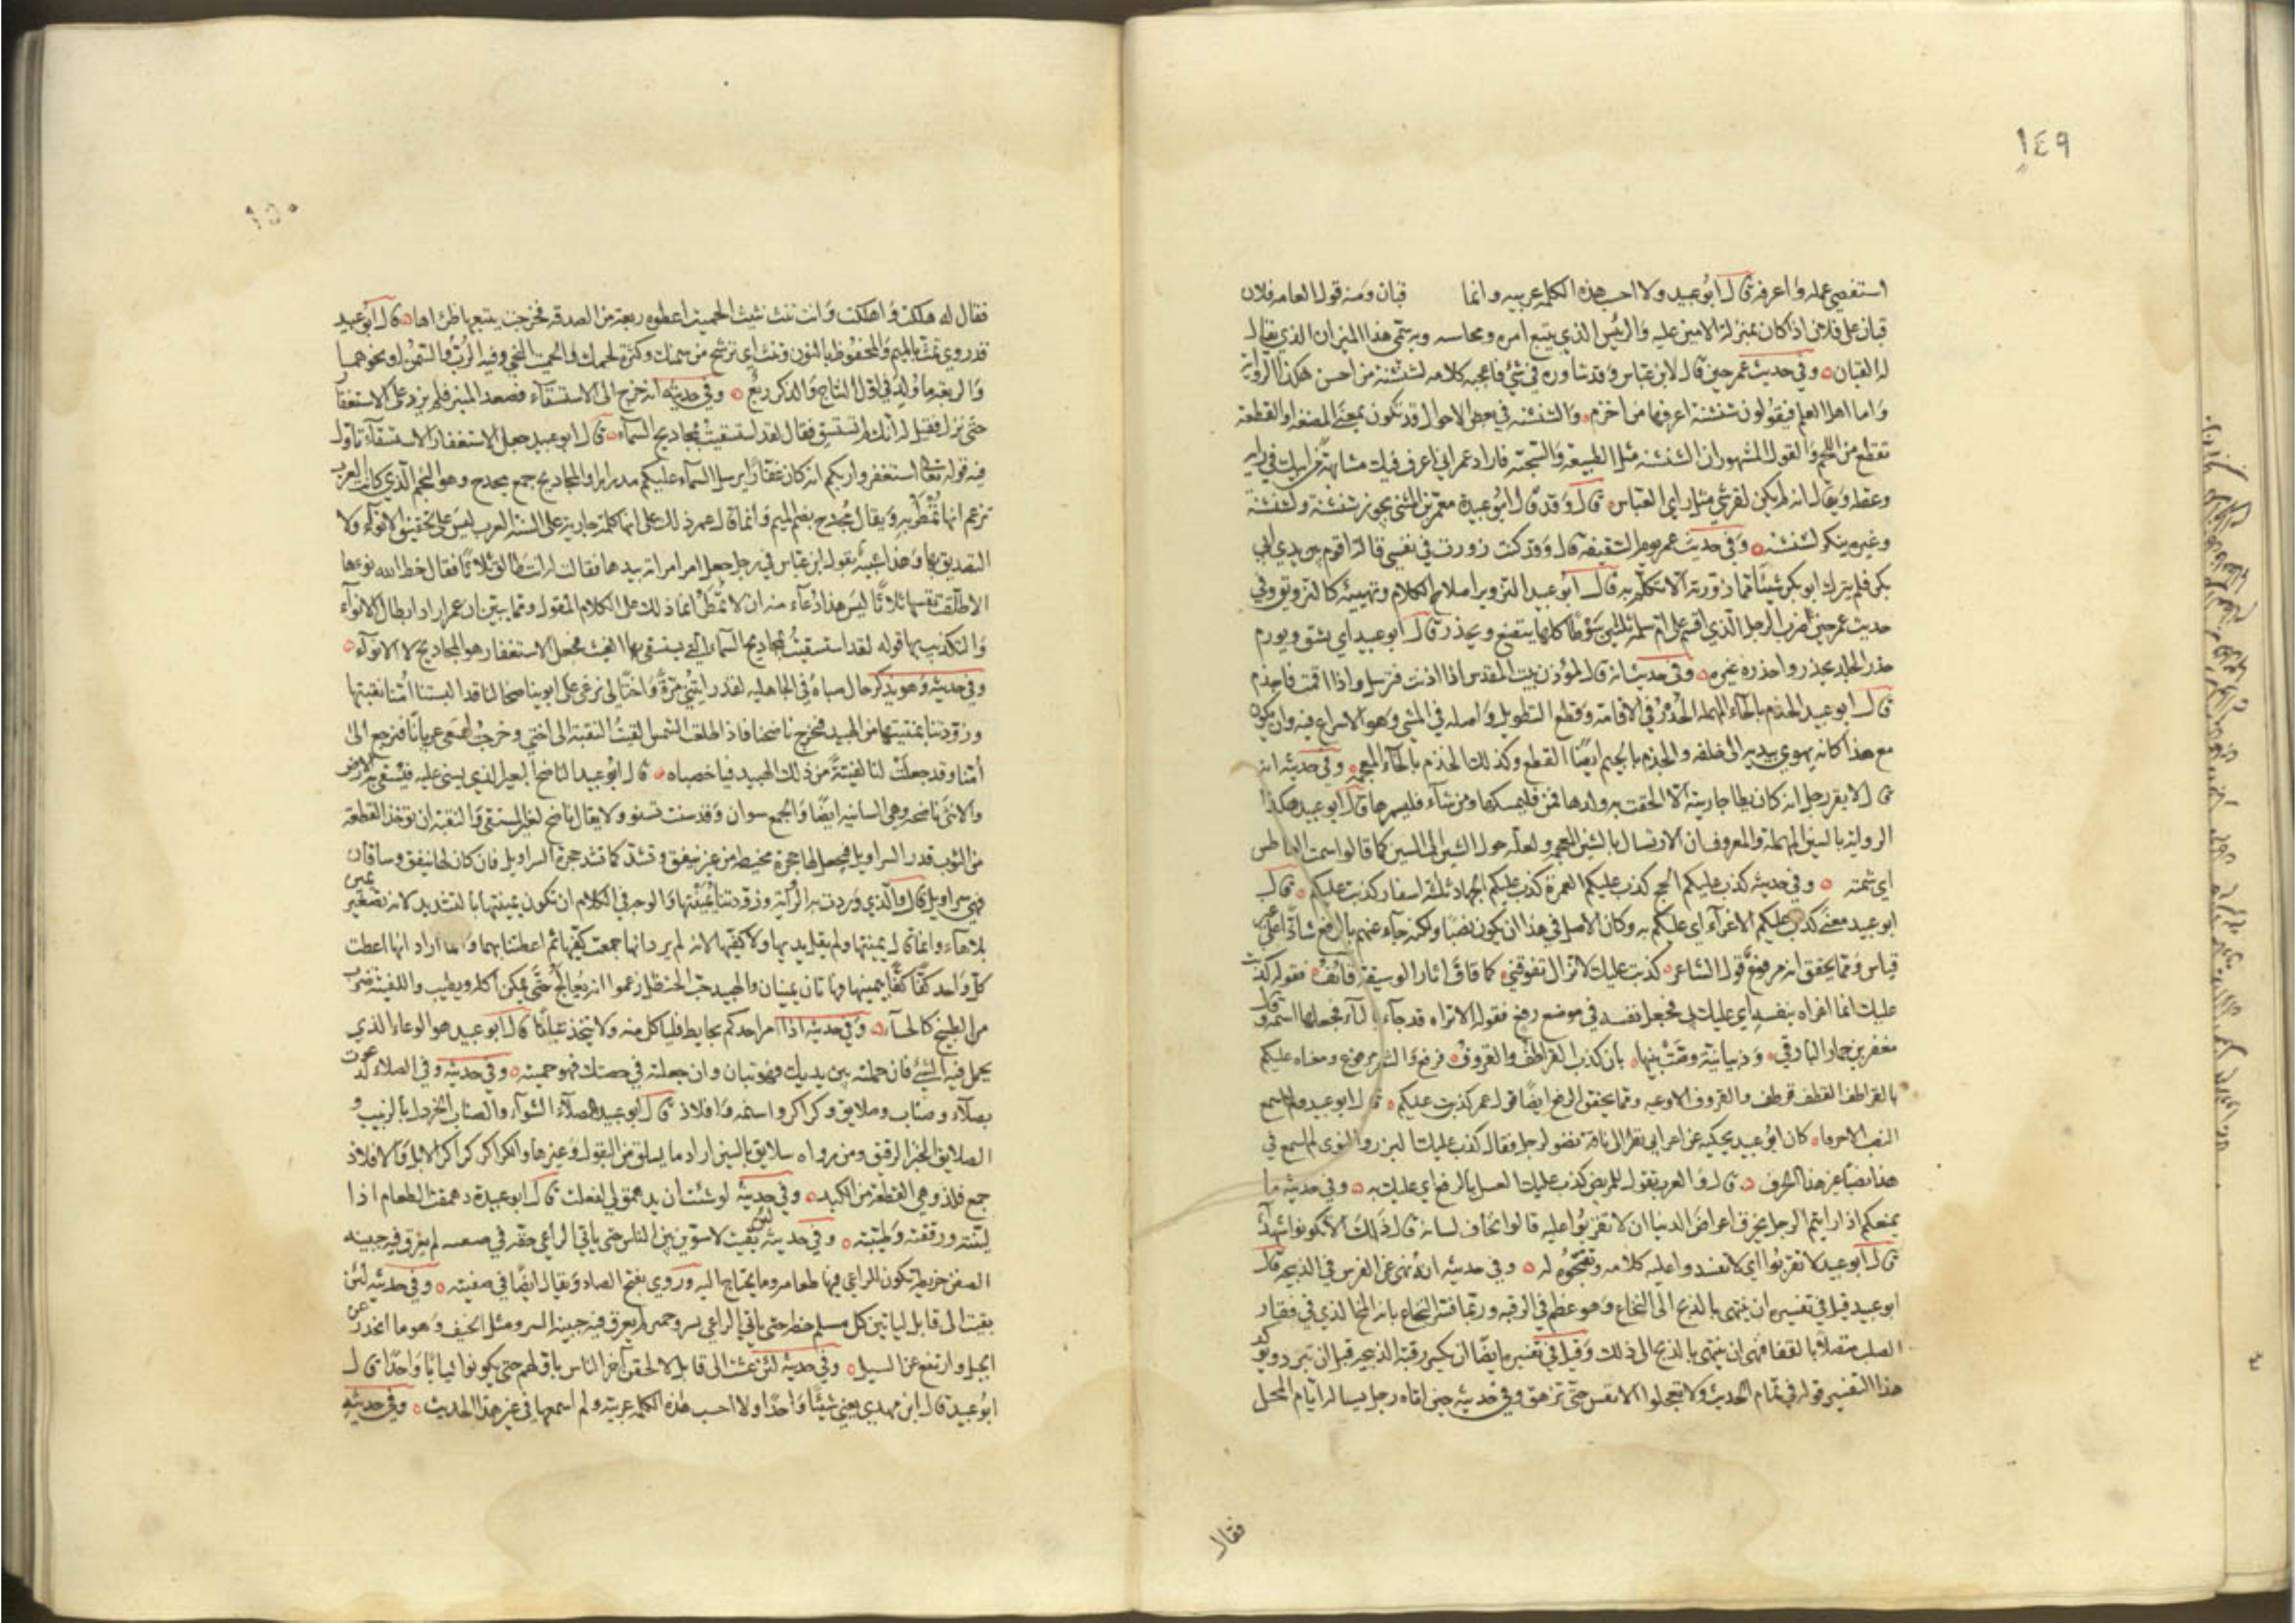 ١٤٩
استقصي عمله واعرفه قال ابو عبيد ولا احسب هذه الكلمه عربيه وانما قبان ومنه قول العامه فلان
قبان على فلان اذا كان بمنزله الامين عليه والرئيس الذي يتبع امره ومحاسبه وبه سمى هذا الميزان الذي يقال
له القبان وفي حديث عمر حين قال لابن عباس وقد شاوره في شئ فاعجبه كلامه لشنشنة من احسن هكذا الرواية
واما اهل العلم فيقولون شنشنة اعرفها من اخزم والشنشنه في بعض الاحوال قد تكون بمعنى المضغه او القطعة
تقطع من اللحم والقول المشهور ان الشنشنه مثل الطبيعة والسجية فاراد عمر اني اعرف فيك مشابهة من ابيك في رايه
وعقله ويقال انه لم يكن لقرشي مثل راي العباس قال وقد قال ابو عبيدة معمر بن المثنى يجوز شنشنة ونشنشة
وغيره ينكر نشنشه وفي حديث عمر يوم السقيفة قال وقد كنت زورت في نفسي قالة اقوم بها بين يدي ابي
بكر فلم يترك ابو بكر شيئا مما زورته الا تكلم به قال ابو عبيد التزوير اصلاح الكلام وتهيئته كالتزويق وفي
حديث عمر حين ضرب الرجل الذي اقسم على ام سلمة ثلثين سوطا كلها يبضع ويحدر قال ابو عبيد اي يشق ويورم
حدر الجلد يحدر واحدره غيره وفي حديث انه قال لمؤذن بيت المقدس اذا اذنت فترسل واذا اقمت فاحذم
قال ابو عبيد الحذم بالحاء المهملة الحدر في الاقامة وقطع التطويل واصله في المشي وهو الاسراع فيه وان يكون
مع هذا كانه يهوي بيديه الى خلفه والجذم بالجيم ايضا القطع وكذلك الخذم بالخاء المعجمه وفي حديثه انه
قال لا يقر رجل انه كان يطا جاريته الا الحقت به ولدها فمن شاء فليمسكها ومن شاء فليسمرها قال ابو عبيد هكذا
الرواية بالسين المهملة والمعروف ان الارسال بالشين المعجمه ولعله حول الشين الى السين كما قالوا سمت العاطس
اي شمته وفي حديثه كذب عليكم الحج كذب عليكم العمرة كذب عليكم الجهاد ثلثة اسفار كذبت عليكم قال
ابو عبيد معنى كذب عليكم الاغراء اي عليكم به وكان الاصل في هذا ان يكون نصبا ولكنه جاء عنهم بالرفع شاذا على غير
قياس ومما يحقق انه مرفوع قول الشاعر كذبت عليك لا تزال تقوفني كما قاف اثار الوسيقة قائف فقوله كذبت
عليك انما اغراه بنفسه اي عليك بي فجعل نفسه في موضع رفع فقوله الا تراه قد جاء بالتاء فجعلها اسمه وقال
معقر بن حمار البارقي وذبيانية وصت بنيها بان كذب القراطف والقروف فرفع والشعر مرفوع ومعناه عليكم
بالقراطف القطف قرطف والقروف الاوعيه ومما يحقق الرفع ايضا قول عمر كذبت عليكم قال ابو عبيد ولم اسمع
النصب الا حرفا كان ابو عبيد يحكيه عن اعرابي نظر الى ناقة نضو لرجل فقال كذب عليك البزر والنوى لم اسمع في
هذا نصبا غير هذا الحرف قال والعرب تقول للمريض كذب عليك العسل بالرفع اي عليك به وفي حديثه ما
يمنعكم اذا رايتم الرجل يخرق اعراض الدنيا ان لا تعربوا عليه قالوا نخاف لسانه قال ذلك الا تكونوا شهداء
قال ابو عبيد لا تعربوا اي لا تفسدوا عليه كلامه وتقبحوه له وفي حديثه انه نهى عن الفرس في الذبيحه قال
ابو عبيد قيل في تفسيره ان ينتهى بالذبح الى النخاع وهو عظم في الرقبه وربما فسر النخاع بانه المخ الذي في فقار
الصلب متصلا بالقفا فنهى ان ينتهى بالذبح الى ذلك وقيل في تفسيره ايضا ان يكسر رقبة الذبيحه قبل ان تبرد ويؤكد
هذا التفسير قوله في تمام الحديث ولا تعجلوا الانفس حتى تزهق وفي حديثه حين اتاه رجل يساله ايام المحل
فقال
١٥٠
فقال له هلكت واهلكت وانت تنث نثيث الحميت اعطوه ربعة من الصدقه فخرجت يتبعها ظئراها قال ابو عبيد
قد روي تمث بالميم والمحفوظ بالنون وتنث اي ترشح من سمنك وكثرة لحمك والحميت النحي وفيه الرب والسمن او نحوهما
والربعه ما ولد في اول النتاج والذكر ربع وفي حديثه انه خرج الى الاستسقاء فصعد المنبر فلم يزد على الاستغفار
حتى نزل فقيل له انك لم تستسق فقال لقد استسقيت بمجاديح السماء قال ابو عبيد جعل الاستغفار الاستسقاء تاول
فيه قوله تعالى استغفروا ربكم انه كان غفارا يرسل السماء عليكم مدرارا والمجاديح جمع مجدح وهو النجم الذي كانت العرب
تزعم انها تمطر به ويقال مجدح بضم الميم وانما قال عمر ذلك على انها كلمة جارية على السنة العرب ليس على تحقيق الانواء ولا
التصديق بها وهذا شبيه بقول ابن عباس في رجل جعل امر امراته بيدها فقالت انت طالق ثلاثا فقال خطا الله نوءها
الا طلقت نفسها ثلاثا ليس هذا دعاء منه ان لا تمطر انما ذلك على الكلام المقول ومما يبين ان عمر اراد ابطال الانواء
والتكذيب بها قوله لقد استسقيت بمجاديح السماء التي يستسقى بها الغيث فجعل الاستغفار هو المجاديح لا الانواء
وفي حديثه وهو يذكر حال صباه في الجاهليه لقد رايتني مرة واختا لي نرعى على ابوينا ناضحا لنا قد البستنا امنا نقبتها
وزودتنا يمينتيها من الهبيد فنخرج ناضحنا فاذا طلعت الشمس القيت النقبة الى اختي وخرجت اسعى عريانا فنرجع الى
امنا وقد جعلت لنا لفيتة من ذلك الهبيد فيا خصباه قال ابو عبيد الناضح البعير الذي يسنى عليه فيسقى به الارض
والانثى ناضحه وهي السانيه ايضا والجمع سوان وقد سنت تسنو ولا يقال ناضح لغير المستقي والنقبة ان تؤخذ القطعة
من الثوب قدر السراويل فيجعل لها حجزة مخيطه من غير نيفق وتشد كما تشد حجزة السراويل فان كان لها نيفق وساقان
فهي سراويل قال والذي وردت به الرواية وزودتنا يمينتيها والوجه في الكلام ان تكون يمينتيها بالتشديد لانه تصغير يمين
بلا هاء وانما قال يمينتيها ولم يقل يديها ولا كفيها لانه لم يرد انها جمعت كفيها ثم اعطتنا بهما وانما اراد انها اعطت
كل واحد كفا كفا بيمينها فهاتان يمينان والهبيد حب الحنظل زعموا انه يعالج حتى يمكن اكله ويطيب واللفيتة ضرب
من الطبيخ كالحساء وفي حديثه اذا مر احدكم بحايط فلياكل منه ولا يتخذ ثبانا قال ابو عبيد هو الوعاء الذي
يحمل فيه الشئ فان حملته بين يديك فهو ثبان وان جعلته في حضنك فهو خبنه وفي حديثه وفي الصلاء لدعوت
بصلاء وصناب وصلايق وكراكر واسنمه وافلاذ قال ابو عبيد الصلاء الشواء والصناب الخردل بالزبيب و
الصلايق الخبز الرقيق ومن رواه سلايق بالسين اراد ما يسلق من البقول وغيرها والكراكر كراكر الابل والافلاذ
جمع فلذ وهي القطعة من الكبد وفي حديثه لو شئت ان يدهمق لي لفعلت قال ابو عبيدة دهمقت الطعام اذا
لينته ورققته وطيبته وفي حديثه لئن بقيت لاسوين بين الناس حتى ياتي الراعي حقه في صفنه لم يعرق فيه جبينه
الصفن خريطة تكون للراعي فيها طعامه وما يحتاج اليه وروي بفتح الصاد ويقال ايضا في صفنيته وفي حديثه لئن
بقيت الى قابل لياتين كل مسلم حظه حتى ياتي الراعي بسرو حمير لم يعرق فيه جبينه السرو مثل الخيف وهو ما انحدر عن
الجبل وارتفع عن السيل وفي حديثه لئن عشت الى قابل لالحقن آخر الناس باولهم حتى يكونوا ببانا واحدا قال
ابو عبيد قال ابن مهدي يعني شيئا واحدا ولا احسب هذه الكلمه عربية ولم اسمعها في غير هذا الحديث وفي حديثه